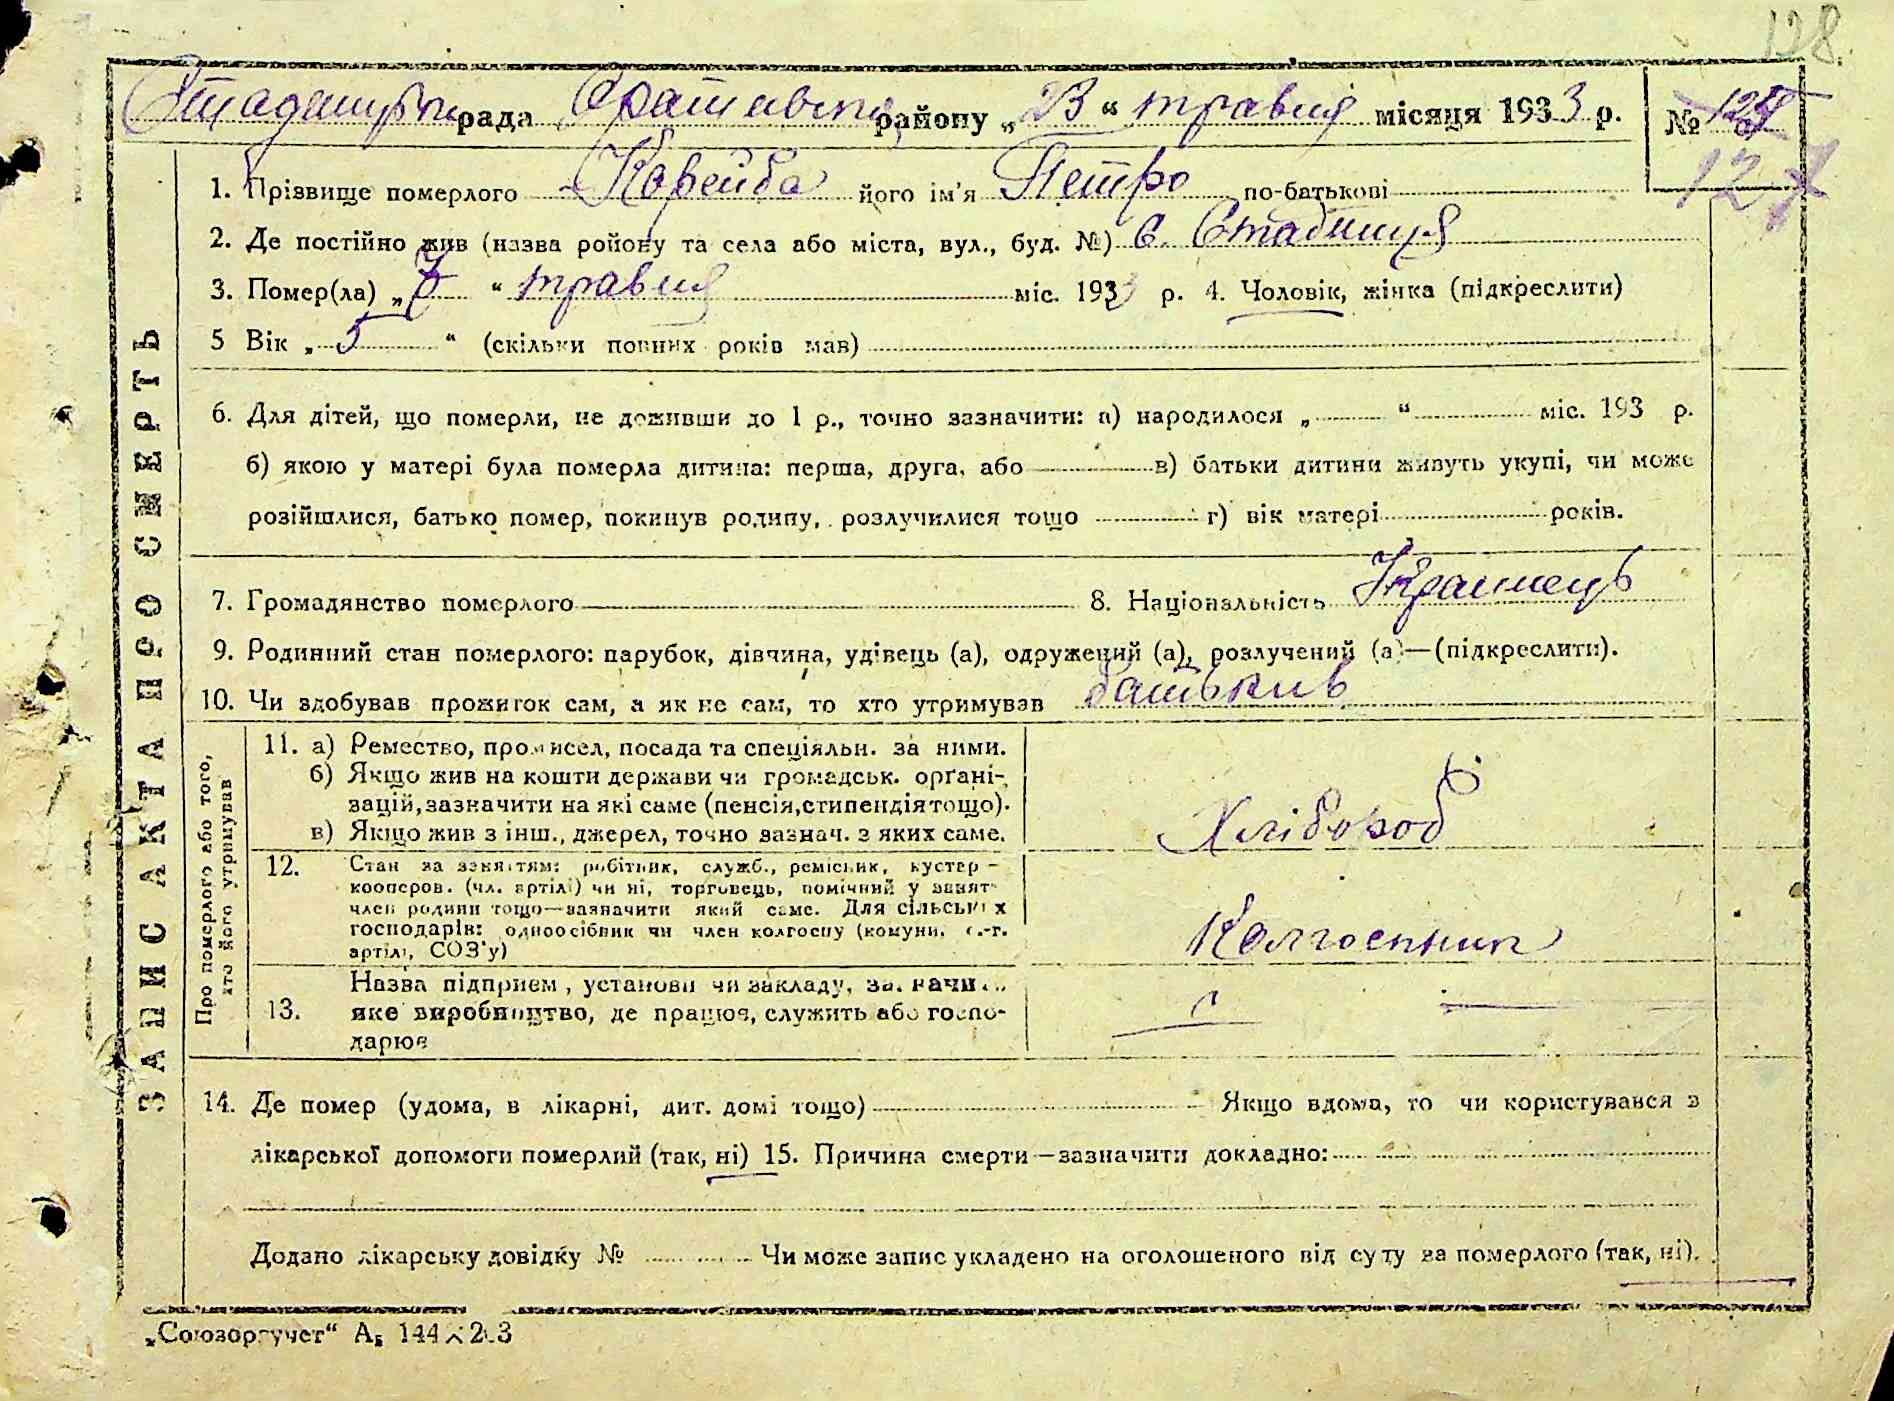 128
Стадницька рада район у „23“ травня місяця 1933 р. №
127
1. Прізвище померлого Корейба його ім'я Петро по-батькові
2. Де постійно жив (назва ройону та села або міста, вул., буд. №) С. Стадниця
3. Помер(ла) „7“ травня міс. 1933 р. 4. Чоловік, жінка (підкреслити)
5 Вік „5“ (скільки повних років мав)
6. Для дітей, що померли, не доживши до 1 р., точно зазначити: а) народилося „ “ міс. 193 р.
б) якою у матері була померла дитина: перша, друга, або в) батьки дитини живуть укупі, чи може
розійшлися, батько помер, покинув родину, розлучилися тощо г) вік матері років.
7. Громадянство померлого 8. Національність Українець
9. Родинний стан померлого: парубок, дівчина, удівець (а), одружений (а), розлучений (а)—(підкреслити).
10. Чи здобував прожиток сам, а як не сам, то хто утримував батьки
ЗАПИС АКТА ПРО СМЕРТЬ
Про померлого або того,
хто його утримував
11. а) Ремество, промисел, посада та спеціяльн. за ними.
б) Якщо жив на кошти держави чи громадськ. орґані-
зацій, зазначити на які саме (пенсія, стипендія тощо).
в) Якщо жив з інш., джерел, точно зазнач. з яких саме.
Хлібороб
12. Стан за заняттям: робітник, служб., ремісник, кустар -
кооперов. (чл. артілі) чи ні, торговець, помічний у занят
член родини тощо—зазначити який саме. Для сільських
господарів: одноосібник чи член колгоспу (комуни, с.-г.
артілі, СОЗ'у)
Колгоспник
13. Назва підприєм, установи чи закладу, зазначи
яке виробництво, де працює, служить або госпо-
дарює
14. Де помер (удома, в лікарні, дит. домі тощо) Якщо вдома, то чи користувався з
лікарської допомоги померлий (так, ні) 15. Причина смерти—зазначити докладно:
Додано лікарську довідку № Чи може запис укладено на оголошеного від суду за померлого (так, ні).
„Союзоргучет“ А₅ 144×203